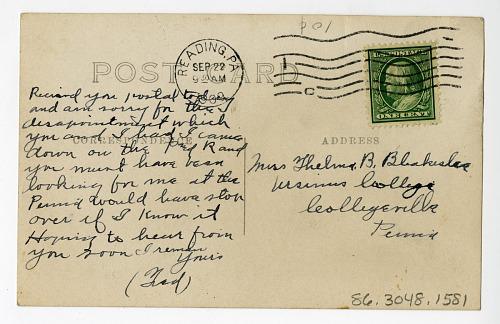 P01
READING, PA.
SEP 22
9 30 AM
POST CARD
U.S. POSTAGE
ONE CENT
CORRESPONDENCE
ADDRESS
Recivd you postal today
and am sorry for the
disapointment which
you and I had I came
down on the R and
you must have been
looking for me at the
Penna would have stop
over if I know it
Hoping to hear from
you soon I remain
Yours
(Fred)
Miss Thelma B. Blakeslee
Ursinus College
Collegeville
Penna
86.3048.1581